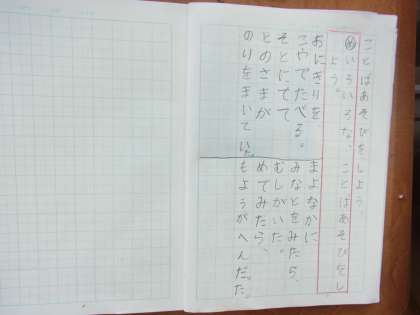 ことばあそびをしよう。
めいろいろな、ことばあそびをし
よう。
おにぎりを、
こやでたべる。
そとにでて
とのさまが
のりをまいていた。
まよなかに
みなとをみたら、
むしがいた。
めでみたら、
もようがへんだった。